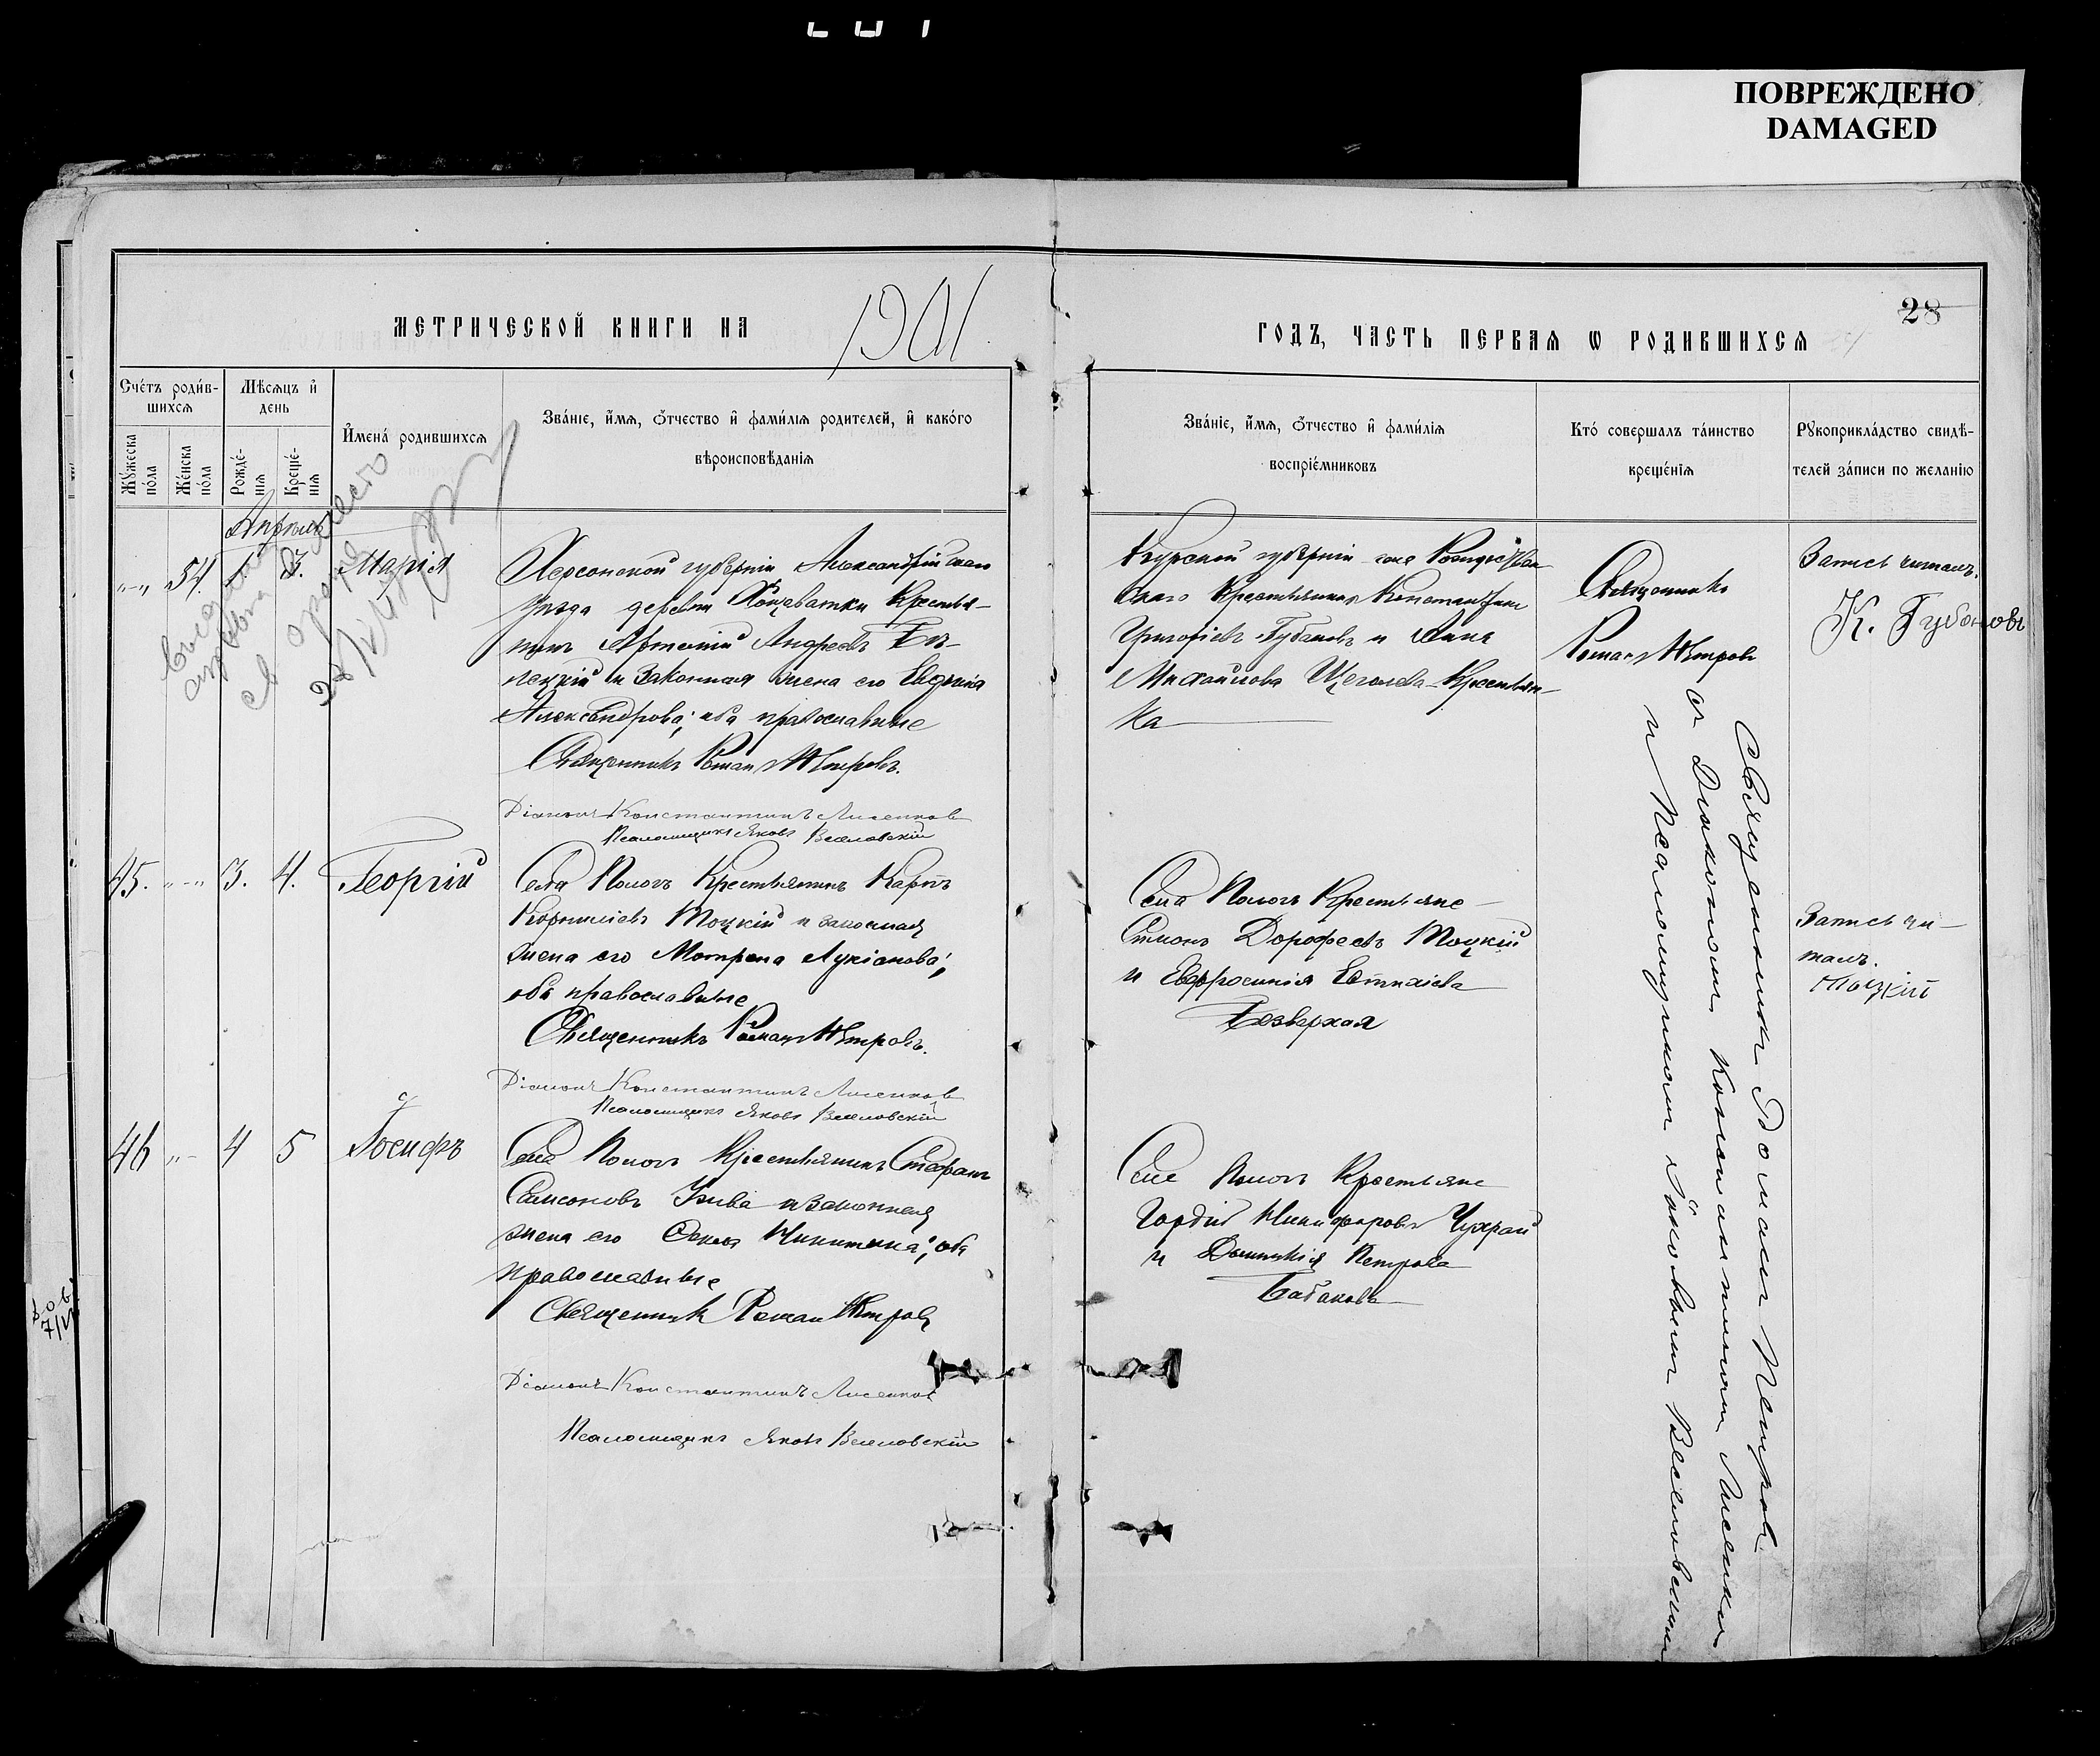 ПОВРЕЖДЕНО
DAMAGED
28
МЕТРИЧЕСКОЙ КНИГИ НА 1901
ГОДЪ, ЧАСТЬ ПЕРВАЯ Ѡ РОДИВШИХСЯ
Счéтъ родѝв-
шихся
Мѣсяцъ и҆
день
Мꙋ́жеска
пóла
Жéнска
пóла
Рождé-
нія
Крещé-
нія
И҆менà родившихся
Звáніе, и҆́мя, ѻ҆́тчество и҆ фамѝлія родителей, и҆ какóго
вѣроисповѣ́данія
Звáніе, и҆́мя, ѻ҆́тчество и҆ фамѝлія
воспріéмниковъ
Ктò совершалъ тáинство
крещéнія
Рꙋкоприклáдство свидѣ-
телей зáписи по желáнію
Апрѣль
„-„ 54. 1 3. Марія
Херсонской губерніи Александрійскаго
уѣзда деревни Крестья-
нинъ Артемій Андреевъ Бѣ-
лецкій и законная жена его Евдокія
Александрова; оба православные
Священникъ Романъ Петровъ.
Діаконъ Константинъ Лисенков
Псаломщикъ Яковъ Веселовскій
Курской губерніи села Рождествен
скаго Крестьянинъ Константинъ
Григорьевъ Губановъ и Анна
Михайлова Щеголева-Крестьян-
ка
Священникъ
Романъ Петровъ
Запись читалъ.
К. Губановъ
45. „-„ 3. 4. Георгій
Села Пологъ Крестьянинъ Карпъ
Корниліевъ Тоцкій и законная
жена его Матрона Лукіанова;
оба православные
Священникъ Романъ Петровъ.
Діаконъ Константинъ Лисенков
Псаломщикъ Яковъ Веселовскій
Села Пологъ Крестьяне
Симонъ Дорофеевъ Тоцкій
и Евфросинія Евтихіева
Безверхая
Запись чи-
талъ.
Тоцкій
46 „- 4 5 Іосифъ
Села Пологъ Крестьянинъ Стефанъ
Самсоновъ и законная
жена его Никитина; оба
православные
Священникъ Романъ Петровъ
Діаконъ Константинъ Лисенков
Псаломщикъ Яковъ Веселовскій
Села Пологъ Крестьяне
Гордій Никифоровъ Чухрай
и Домникія Петрова
Бабакова
Священникъ Романъ Петровъ
съ Діакономъ Константиномъ Лисенковымъ
и Псаломщикомъ Іаковомъ Веселовскимъ